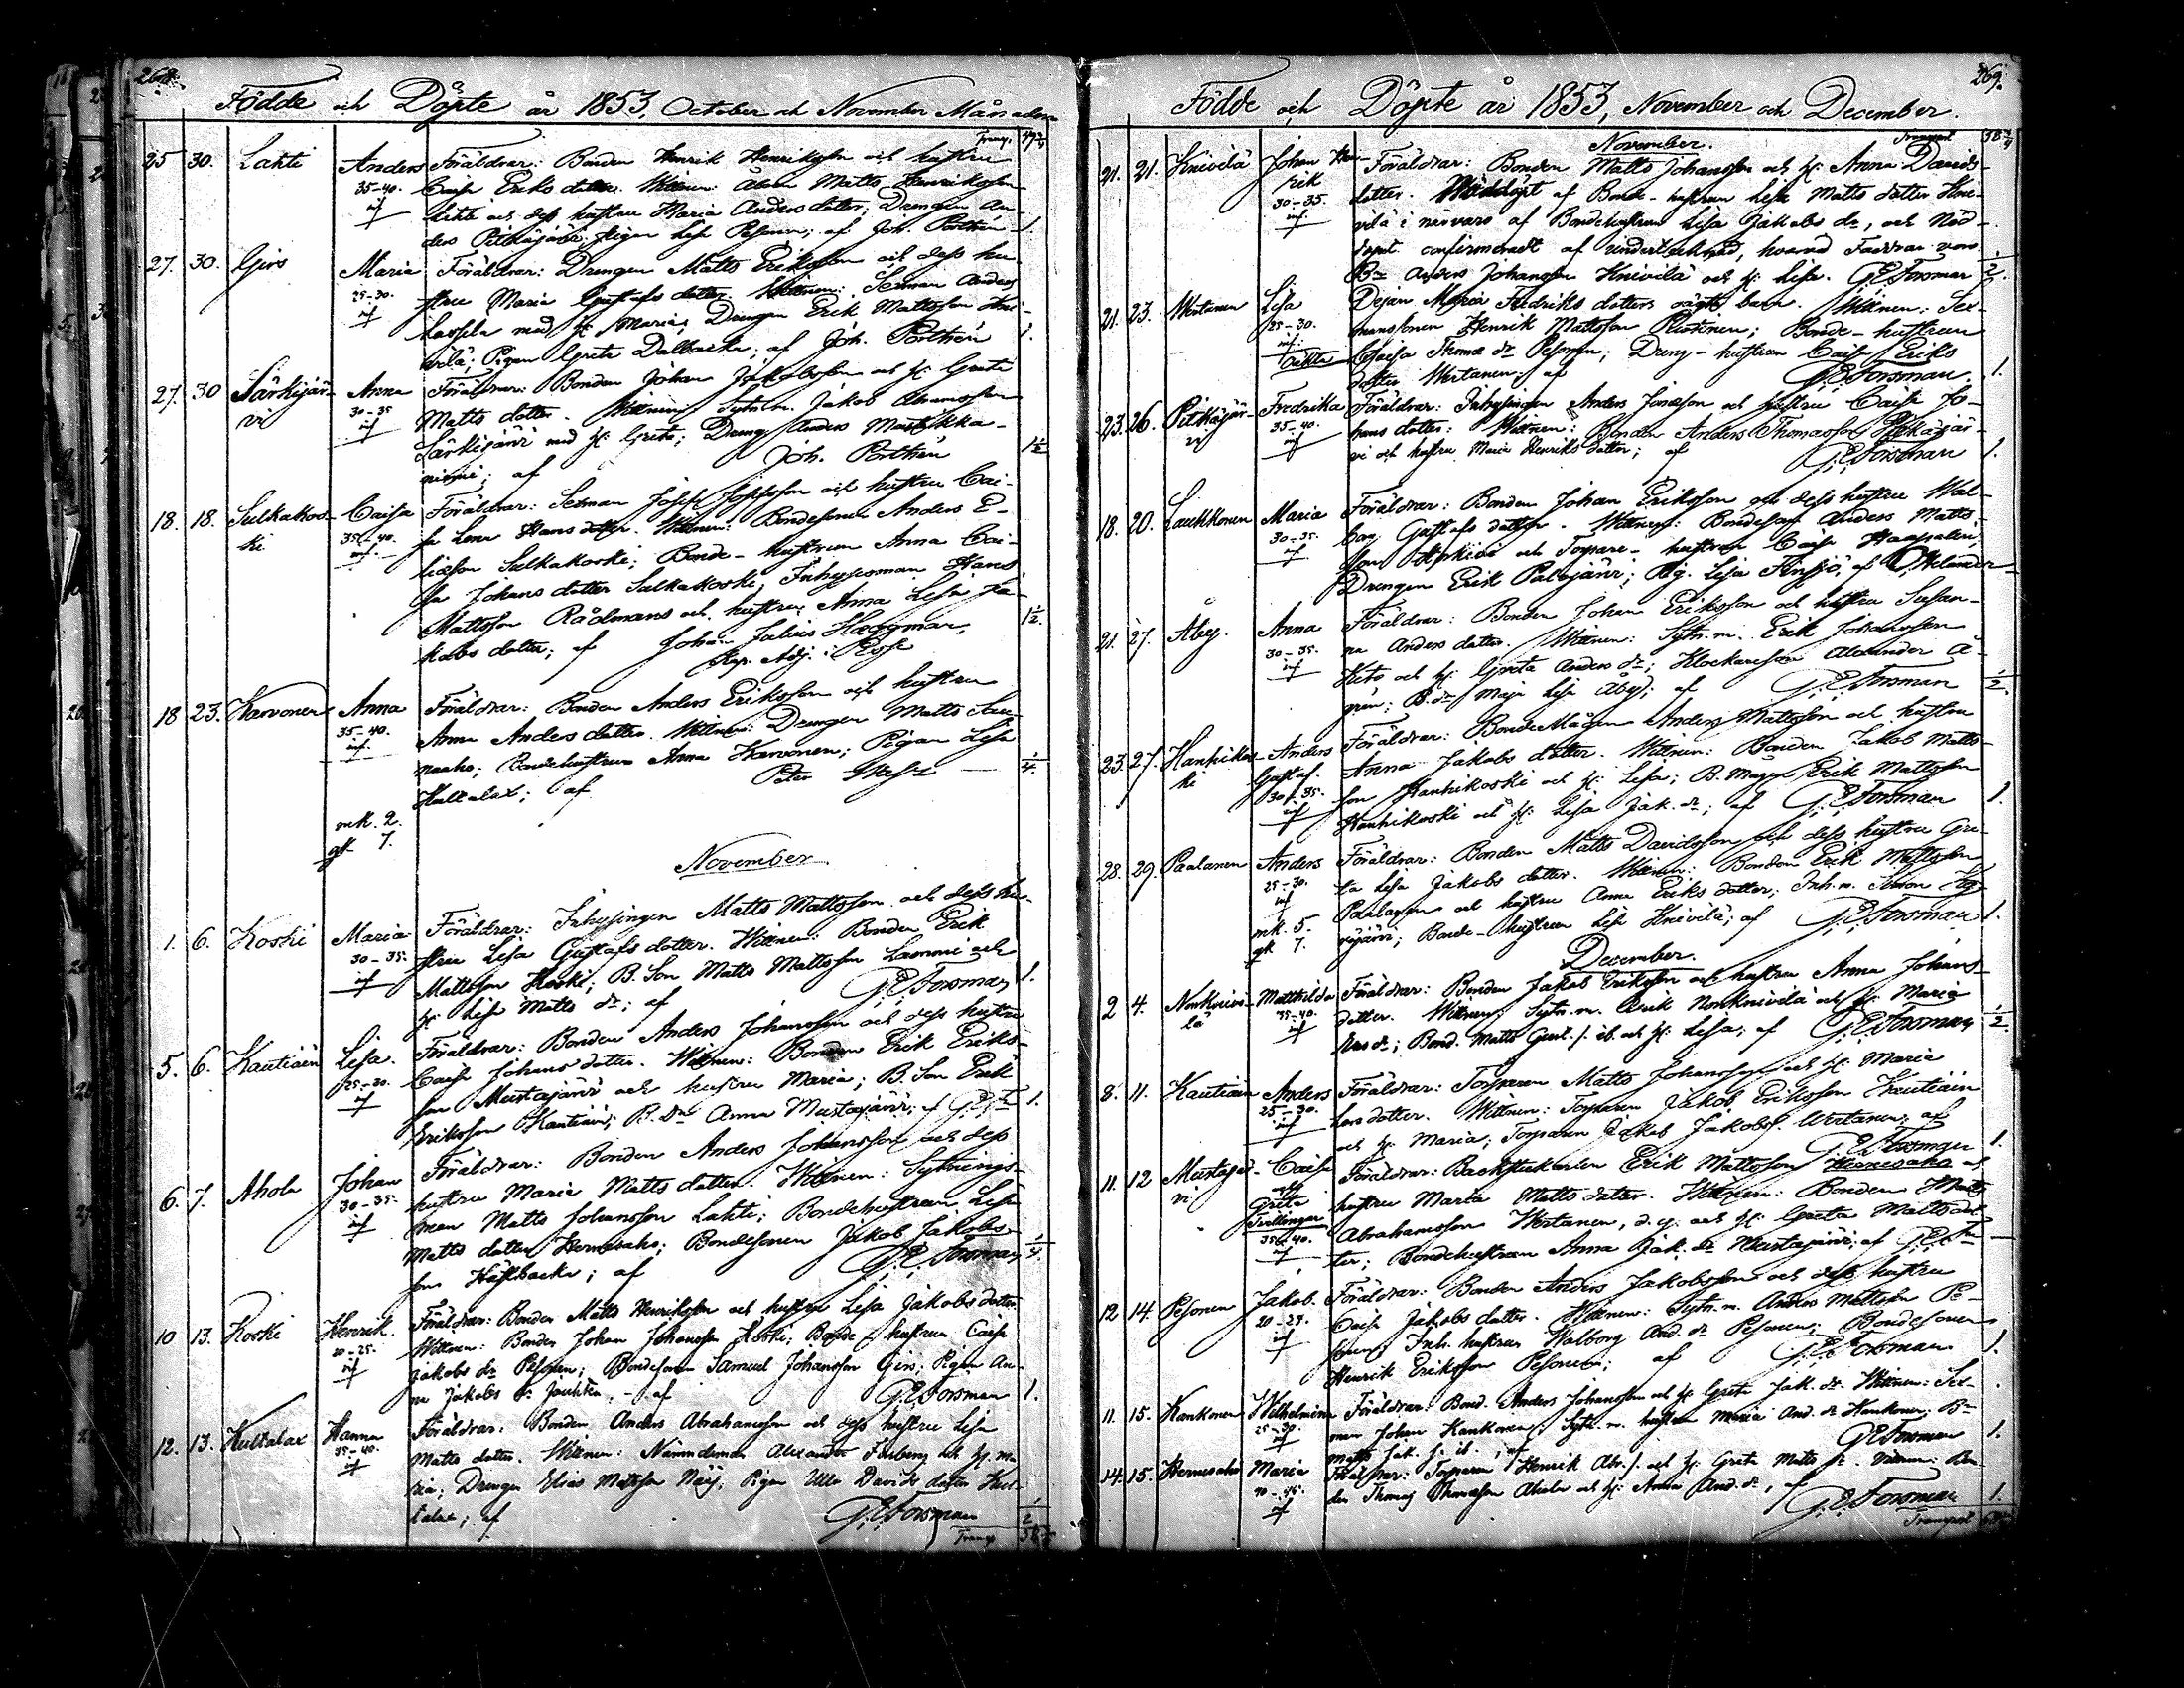 268.
Födde och Döpte år 1853, October och November Månader
Transp.
25 30. Lahti Anders Föräldrar: Bonden Henrik Henriksson och hustru
35-40. Caisa Eriks dotter. Wittnen: Matts Henriksson
Lahti och dess hustru Maria Anders dotter; Drengen An-
ders Pitkäjärvi; Pigan Lisa Pesonen; af Joh. Porthén 1.
27. 30. Girs Maria Föräldrar: Drengen Matts Eriksson och dess hu-
25-30. stru Maria Gustafs dotter. Wittnen: Sexman Anders
Kassila med H: Maria; Drengen Erik Mattsson Kni-
vilä; Pigan Greta Dalbacka; af Joh. Porthén 1.
27. 30 Särkijär- Anna Föräldrar: Bonden Johan Jakobsson och H: Greta
vi 30-35 Matts dotter. Wittnen: Sytn.m. Jakob Abramsson
Särkijärvi med H: Greta; Dreng Anders Mustikka-
niemi; af Joh. Porthén 1½
18. 18. Sulkakos- Caisa Föräldrar: Sexman Josef Josefsson och hustru Cai-
ki 35-40. sa Lena Hans dotter. Wittnen: Bondesonen Anders E-
liasson Sulkakoski; Bonde-hustrun Anna Cai-
sa Johans dotter Sulkakoski; Inhysesman Hans
Mattsson Rådmans och hustru Anna Lisa Ja- 1½.
kobs dotter; af Johan Julius Häggman,
Kap. Adj. i Perho
18 23. Karvonen Anna Föräldrar: Bonden Anders Eriksson och hustru
35-40. Anna Anders dotter. Wittnen: Drengen Matts Sau-
naaho; Bondehustrun Anna Karvonen; Pigan Lisa
Kultalax; af Peter
mk. 2.
qk 7.
November
1. 6. Koski Maria Föräldrar: Inhysingen Matts Mattsson och dess hu-
30-35. stru Lisa Gustafs dotter. Wittnen: Bonden Erik
Mattsson Koski; B. Son Matts Mattsson Lammi och
H: Lisa Matts dr; af G. E. Forsman 1.
5. 6. Kautiain Lisa. Föräldrar: Bonden Anders Johansson och dess hustru
25-30. Caisa Johans dotter. Wittnen: Bonden Erik Eriks-
son Mustajärvi och hustru Maria; B. Son Erik
Eriksson Kautiain; B. dr Anna Mustajärvi; af G. E. Fn 1.
6. 7. Ahola Johan Föräldrar: Bonden Anders Johansson och dess
30-35. hustru Maria Matts dotter. Wittnen: Sytnings-
man Matts Johansson Lahti; Bondehustrun Lisa
Matts dotter Hernesaho; Bondesonen Jakob Jakobs-
son Högbacka; af G. E. Forsman
10 13. Koski Henrik. Föräldrar: Bonden Matts Henriksson och hustru Lisa Jakobs dotter
20-25. Wittnen: Bonden Johan Johansson Koski; Bonde-hustrun Caisa
Jakobs dr Pesonen; Bondesonen Samuel Johansson Girs; Pigan An-
na Jakobs dr; af G. E. Forsman 1.
12. 13. Kultalax Hanna Föräldrar: Bonden Anders Abrahamsson och dess hustru Lisa
35-40. Matts dotter. Wittnen: Nämndeman Alexander Forsberg och H: Ma-
ria; Drengen Elias Mattsson Näsi; Pigan Ulla Davids dotter Kul-
talax; af G. E. Forsman ½
Transp
269.
Födde och Döpte år 1853, November och December.
November. Transport
21. 21. Knivilä Johan Hen- Föräldrar: Bonden Matts Johansson och H: Anna Davids-
rik dotter. Nöddöpt af Bonde-hustrun Lisa Matts dotter Kni-
30-35. vilä i närvaro af Bondehustrun Lisa Jakobs dr, och Nöd-
dopet confirmeradt af undertecknad, hvarvid Faddrar voro
Bn Anders Johansson Knivilä och H: Lisa. G. E. Forsman ½.
21. 23 Wertanen Lisa Pigan Maria Fredriks dotters oägta barn. Wittnen: Sex-
25-30. manssonen Henrik Mattsson; Bonde-hustrun
oäkta Caisa Thomæ dr Pesonen; Dreng-hustrun Caisa Eriks
dotter Wertanen; af G. E. Forsman 1.
23. 26. Pitkäjär- Fredrika Föräldrar: Inhysingen Anders Jonasson och hustru Caisa Jo-
vi 35-40. hans dotter: Wittnen: Bonden Anders Thomasson Pitkäjär-
vi och hustru Maria Henriks dotter; af G. E. Forsman 1.
18. 20. Laukkonen Maria Föräldrar: Bonden Johan Eriksson och dess hustru Wal-
30-35. borg Gustafs dotter. Wittnen: Bondeson Anders Matts-
son och Torpare-hustrun Caisa Haapalen,
Drengen Erik Palojärvi; Pig. Lisa; af Helander
21. 27. Åbyj. Anna Föräldrar: Bonden Johan Eriksson och hustru Susan-
30-35. na Anders dotter. Wittnen: Sytn.m. Erik Johansson
Keto och H: Greta Anders dr; Klockareson Alexander Å-
grén; B. dr Maja Lisa Åbyj; af G. E. Forsman ½.
23. 27. Hanhikos- Anders Föräldrar: BondeMågen Anders Mattsson och hustru
ki Gustaf. Anna Jakobs dotter. Wittnen: Bonden Jakob Matts-
30-35. son Hanhikoski och H: Lisa; B. Mågen Erik Mattsson
Hanhikoski och H: Lisa Jak. dr; af G. E. Forsman 1.
28. 29. Paalanen Anders Föräldrar: Bonden Matts Davidsson och dess hustru Gre-
25-30. ta Lisa Jakobs dotter. Wittnen: Bonden Erik Mattsson
Paalanen och hustru Anna Eriks dotter; Inh.m. Simon
mk. 5. järvi; Bonde-hustrun Lisa Knivilä; af G. E. Forsman 1.
qk 7.
December.
2 4. Norkniwi- Matthilda Föräldrar: Bonden Jakob Eriksson och hustru Anna Johans-
lä 35-40. dotter. Wittnen: Sytn.m. Erik Norknivilä och H: Maria
dr; Bond. Matts Gust. s. ib. och H: Lisa; af G. E. Forsman ½.
8. 11. Kautiain Anders Föräldrar: Torparen Matts Johansson och H: Maria
25-30. Lars dotter. Wittnen: Torparen Jakob Eriksson Kautiain
och H: Maria; Torparen Jakob Jakobs. Wertanen; af
G. E. Forsman 1.
11. 12 Mustajär- Caisa Föräldrar: Backstukarlen Erik Mattsson Hernesaho och
vi och hustru Maria Matts dotter. Wittnen: Bonden Matts
Greta Abrahamsson Wertanen, d. y. och H: Greta Matts dot-
Tvillingar ter; Bondehustrun Anna Jak. dr Mustajärvi; af G. E. Fn
35-40.
12 14. Pesonen Jakob. Föräldrar: Bonden Anders Jakobsson och dess hustru
20-25. Caisa Jakobs dotter. Wittnen: Sytn.m. Anders Mattsson Pe-
sonen; Inh. hustrun Walborg And. dr Pesonen; Bondesonen
Henrik Eriksson Pesonen; af G. E. Forsman 1.
11. 15. Kankonen Wilhelmina Föräldrar: Bond. Anders Johansson och H: Greta Jak. dr. Wittnen: Sex-
25-30. man Johan Kankonen; Sytn.m. hustrun Maria And. dr Kankonen; Bn
Matts Jak. s. ib.; af G. E. Forsman 1.
14. 15. Hernesaho Maria Föräldrar: Torparen Henrik Abr. s. och H: Greta Matts dr. Wittnen: Bon-
40-45. den Thomas Thomasson Ahola och H: Anna And. dr, af
G. E. Forsman 1.
Transport